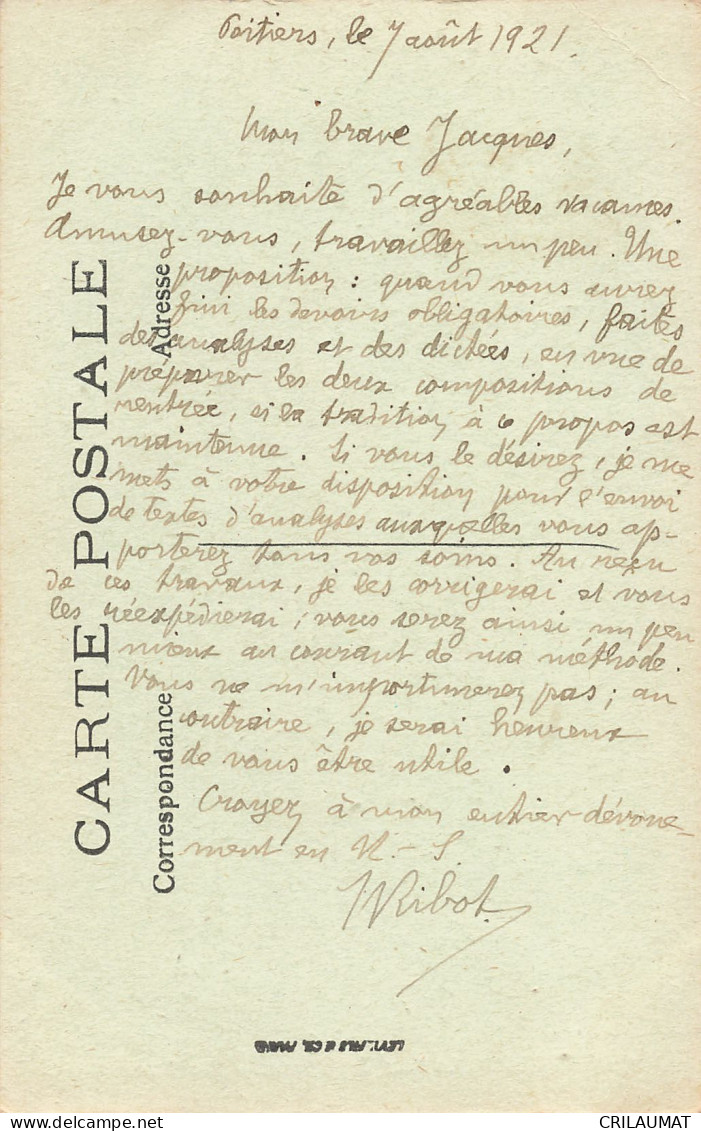 Poitiers, le 7 août 1921
Mon brave Jacques,
Je vous souhaite d'agréables vacances.
Amusez-vous, travaillez un peu. Une
proposition : quand vous aurez
fini les devoirs obligatoires, faites
des analyses et des dictées, en vue de
préparer les deux compositions de
rentrée, si la tradition à ce propos est
maintenue. Si vous le désirez, je me
mets à votre disposition pour l'envoi
de textes d'analyses auxquelles vous ap-
porterez tous vos soins. Au reçu
de ces travaux, je les corrigerai et vous
les réexpédierai ; vous serez ainsi un peu
mieux au courant de ma méthode.
Vous ne m'importunerez pas ; au
contraire, je serai heureux
de vous être utile.
Croyez à mon entier dévoue-
ment en N.-S.
Ribot
CARTE POSTALE
Correspondance
Adresse
LEVY FILS & Cie, PARIS
CRILAUMAT